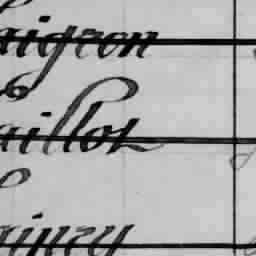 aigron
aillot
ainey